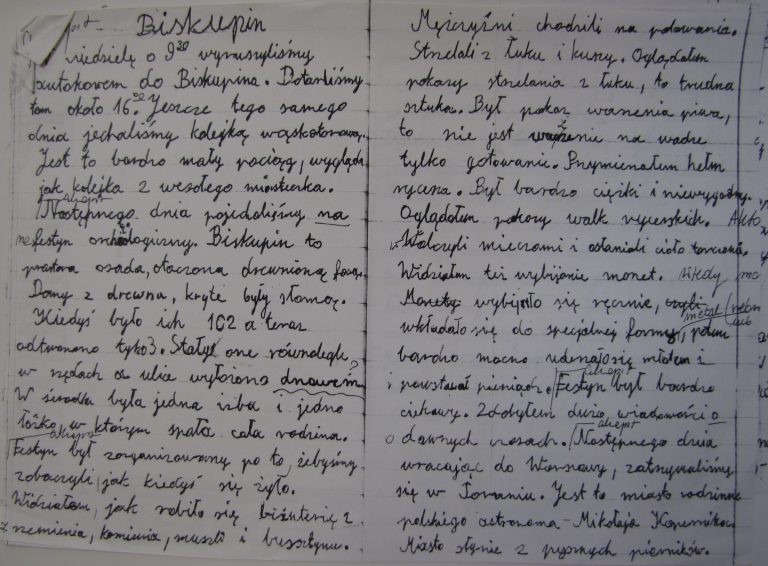 Biskupin
niedzielę o 9³⁰ wyruszyliśmy
autokarem do Biskupina. Dotarliśmy
tam około 16.⁰⁰ Jeszcze tego samego
dnia jechaliśmy kolejką wąskotorową.
Jest to bardzo mały pociąg, wygląda
jak kolejka z wesołego miasteczka.
akapit
Następnego dnia pojechaliśmy na
festyn archeologiczny. Biskupin to
prastara osada, otoczona drewnianą fosą.
Domy z drewna, kryte były słomą.
Kiedyś było ich 102 a teraz
odtworzono tyko 3. Stały one równolegle
w rzędach a ulice wyłożono drewnem?
W środku była jedna izba i jedno
łóżko w którym spała cała rodzina.
akapit
Festyn był zorganizowany po to, żebyśmy
zobaczyli jak kiedyś się żyło.
Widziałam, jak robiło się biżuterię z
rzemienia, kamienia, muszli i bursztynu.
Mężczyźni chodzili na polowania.
Strzelali z łuku i kuszy. Oglądałam
pokazy strzelania z łuku, to trudna
sztuka. Był pokaz warzenia piwa,
to nie jest ważenie na wadze
tylko gotowanie. Przymierzałam hełm
rycerza. Był bardzo ciężki i niewygodny.
Oglądałam pokazy walk rycerskich.
Walczyli mieczami i osłaniali ciało tarczami.
Widziałam też wybijanie monet.
Monety wybijało się ręcznie, czyli
metal
wkładało się do specjalnej formy, potem
bardzo mocno uderzało się młotem i
i powstawał pieniądz. akapit Festyn był bardzo
ciekawy. Zdobyłem dużo wiadomości o
o dawnych czasach. akapit Następnego dnia
wracając do Warszawy, zatrzymaliśmy
się w Toruniu. Jest to miasto rodzinne
polskiego astronoma - Mikołaja Kopernika.
Miasto słynie z pysznych pierników.